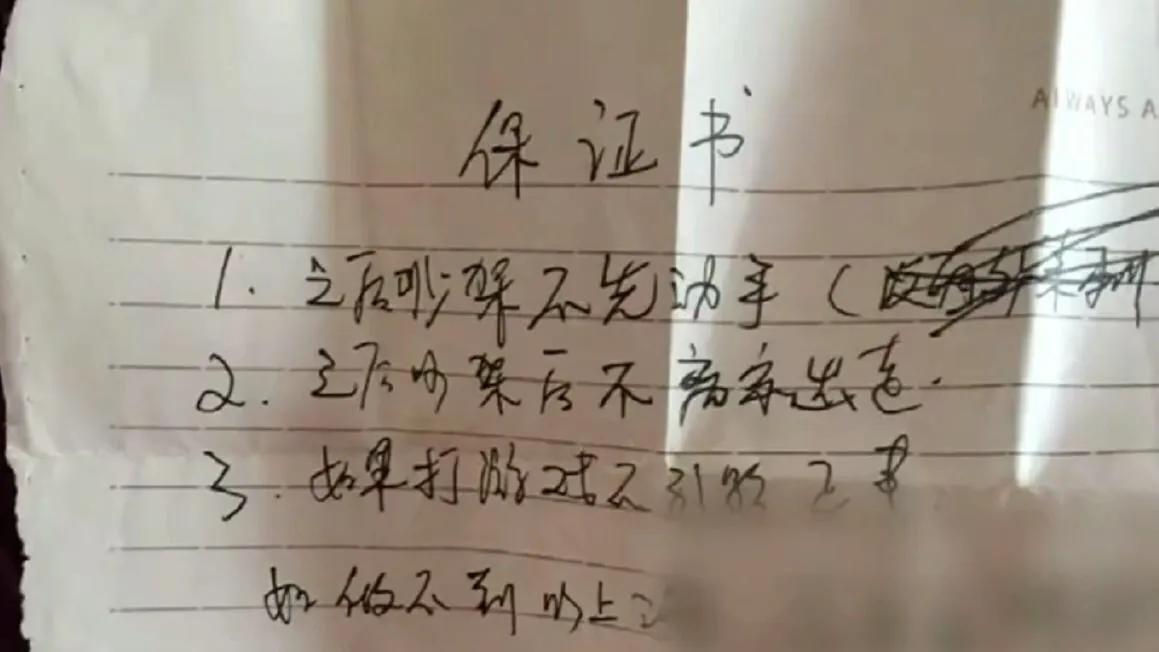 ALWAYS A
保证书
1. 之后吵架不先动手（
2. 之后吵架后不离家出走.
3. 如果打游戏不引的正事
如做不到以上